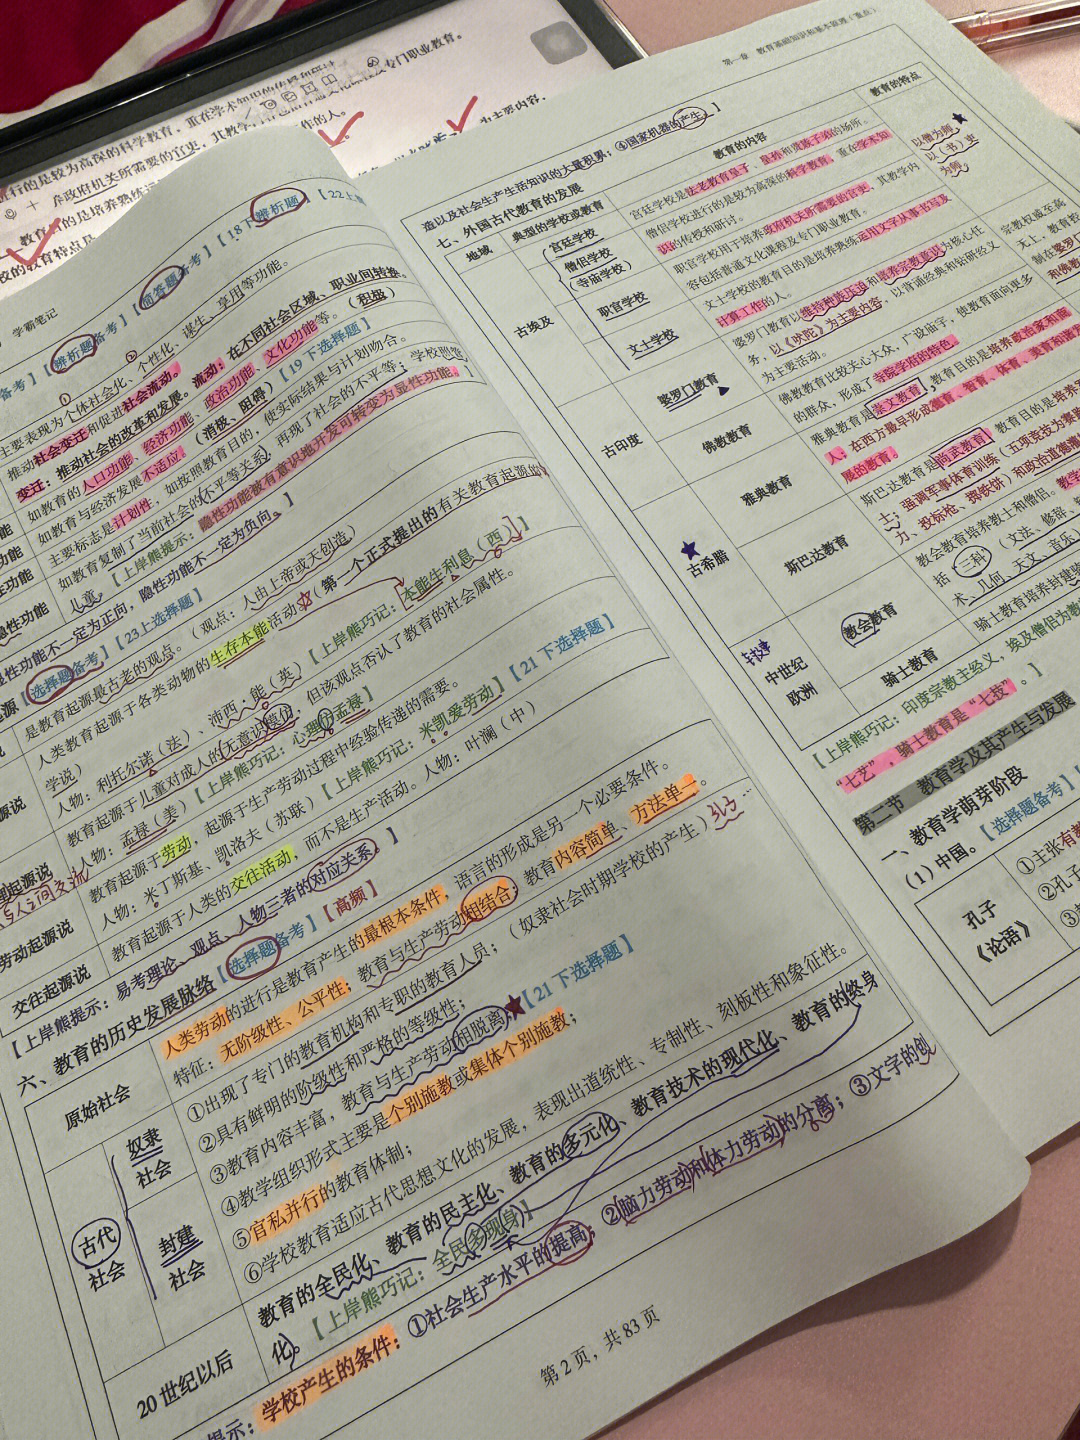 行的是较为高深的科学教育，重在学术知识的传授和研讨
养政府机关所需要的官吏，其教学
教育目的是培养熟练运
校的教育特点是
为主要内容，
专门职业教育。
作的人。
学霸笔记
备考】【辨析题备考】【简答题备考】【18下辨析题】【22上
主要表现为个体社会化、个性化、谋生、享用等功能。
推动社会变迁和促进社会流动。
变迁：推动社会的改革和发展。流动：在不同社会区域、职业间转换。
如教育的人口功能、经济功能、政治功能、文化功能等。（积极）
如教育与经济发展不适应。（消极、阻碍）【19下选择题】
主要标志是计划性，如按照教育目的，使实际结果与计划吻合。
如教育复制了当前社会的不平等关系，再现了社会的不平等；学校照管
儿童。
【上岸熊提示：隐性功能被有意识地开发可转变为显性功能。】
性功能不一定为正向，隐性功能不一定为负向。】
隐性功能
【选择题备考】【23上选择题】
是教育起源最古老的观点。（观点：人由上帝或天创造）
人类教育起源于各类动物的生存本能活动（第一个正式提出的有关教育起源的
学说）
人物：利托尔诺（法）、沛西·能（英）【上岸熊巧记：本能生利息（西）】
教育起源于儿童对成人的无意识模仿，但该观点否认了教育的社会属性。
人物：孟禄（美）【上岸熊巧记：心理仿孟禄】
教育起源于劳动，起源于生产劳动过程中经验传递的需要。
人物：米丁斯基、凯洛夫（苏联）【上岸熊巧记：米凯爱劳动】【21下选择题】
劳动起源说
教育起源于人类的交往活动，而不是生产活动。人物：叶澜（中）
交往起源说
【上岸熊提示：易考理论、观点、人物三者的对应关系。】
六、教育的历史发展脉络【选择题备考】【高频】
原始社会
人类劳动的进行是教育产生的最根本条件，语言的形成是另一个必要条件。
特征：无阶级性、公平性；教育与生产劳动相结合；教育内容简单、方法单一。
古代社会
奴隶社会
封建社会
①出现了专门的教育机构和专职的教育人员；（奴隶社会时期学校的产生）
②具有鲜明的阶级性和严格的等级性；
③教育内容丰富，教育与生产劳动相脱离；【21下选择题】
④教学组织形式主要是个别施教或集体个别施教；
⑤官私并行的教育体制；
⑥学校教育适应古代思想文化的发展，表现出道统性、专制性、刻板性和象征性。
20世纪以后
教育的全民化、教育的民主化、教育的多元化、教育技术的现代化、教育的终身
化。【上岸熊巧记：全民多现身】
提示：学校产生的条件：①社会生产水平的提高；②脑力劳动和体力劳动的分离；③文字的创
第2页，共83页
第一章 教育基础知识和基本原理（重点）
造以及社会生产生活知识的大量积累；④国家机器的产生。】
七、外国古代教育的发展
地域
典型的学校或教育
教育的内容
教育的特点
古埃及
宫廷学校
宫廷学校是法老教育皇子、皇孙和贵族子弟的场所。
僧侣学校
（寺庙学校）
僧侣学校进行的是较为高深的科学教育，重在学术知
识的传授和研讨。
职官学校
职官学校用于培养政府机关所需要的官吏，其教学内
容包括普通文化课程及专门职业教育。
文士学校
文士学校的教育目的是培养熟练运用文字从事书写及
计算工作的人。
以僧为师
以（书）吏
为师
古印度
婆罗门教育
婆罗门教育以维持种族压迫和培养宗教意识为核心任
务，以《吠陀》为主要内容，以背诵经典和钻研经义
为主要活动。
佛教教育
佛教教育比较关心大众，广设庙宇，使教育面向更多
的群众，形成了寺院学府的特色。
宗教权威至高
无上，教育
古希腊
雅典教育
雅典教育是崇文教育，教育目的是培养政治家和商
人；在西方最早形成德育、智育、体育、美育和谐
展的教育。
斯巴达教育
斯巴达教育是尚武教育，教育目的是培养
士；强调军事体育训练（五项竞技为赛
投标枪、掷铁饼）和政治道德灌
中世纪
欧洲
教会教育
教会教育培养教士和僧侣。教学
括三科（文法、修辞、
术、几何、天文、音乐
骑士教育
骑士教育培养封建
【上岸熊巧记：印度宗教主经义，埃及僧侣为
“七艺”，骑士教育是“七技”。】
第二节 教育学及其产生与发展
一、教育学萌芽阶段
（1）中国。【选择题备考】
孔子
《论语》
①主张有教
②孔子
③